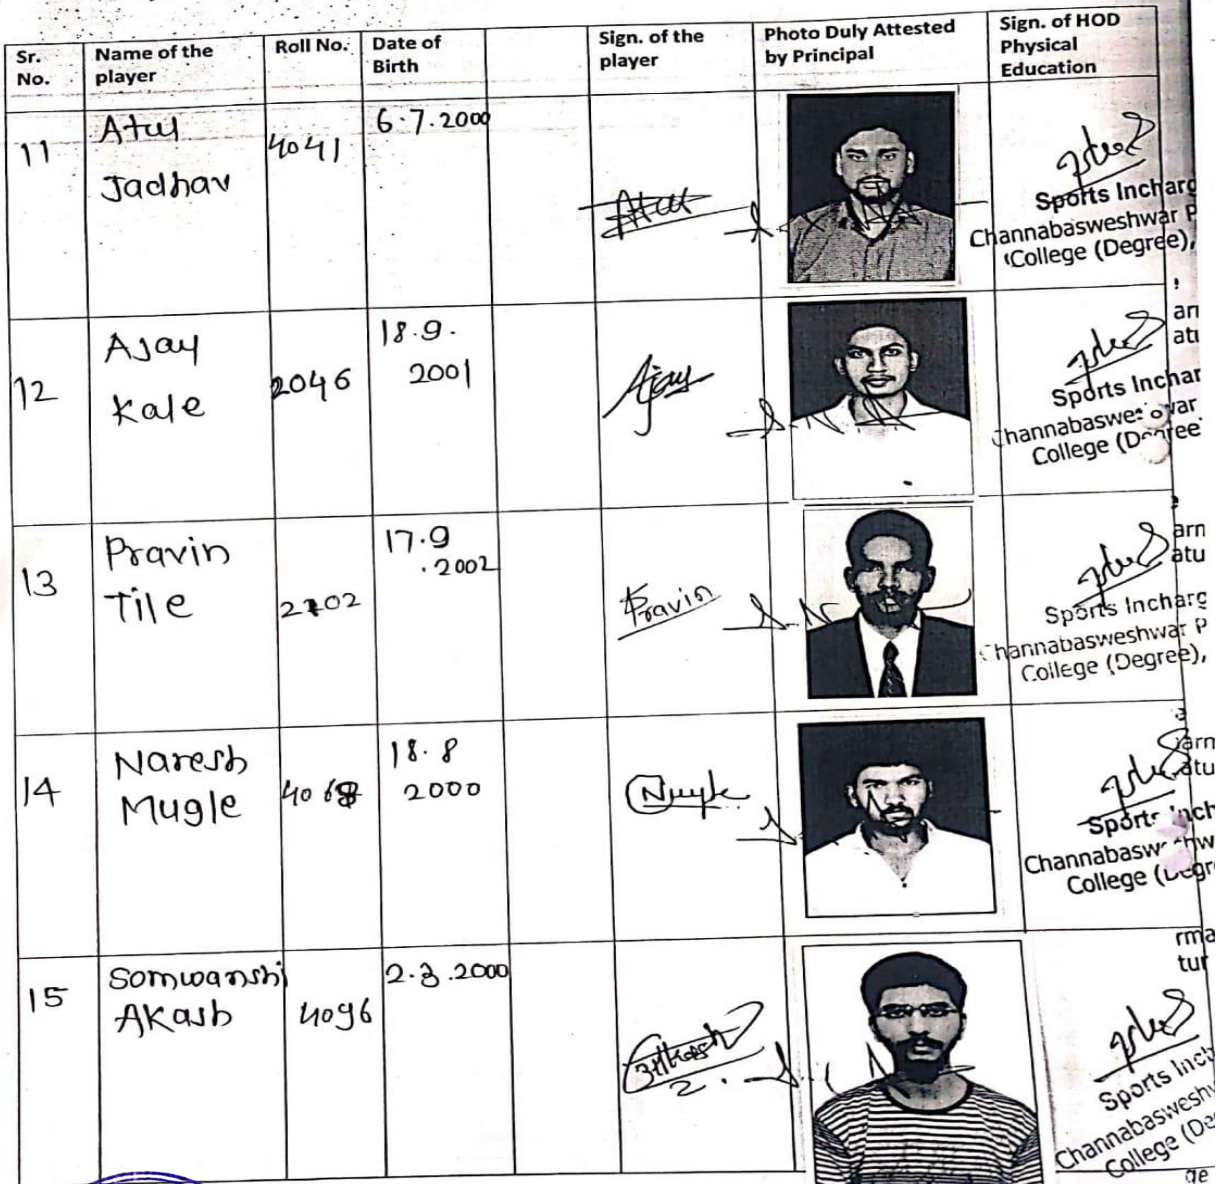 Sr. No.
Name of the player
Roll No.
Date of Birth
Sign. of the player
Photo Duly Attested by Principal
Sign. of HOD Physical Education
11
Atul
Jadhav
4041
6.7.2000
Sports Incharg
Channabasweshwar P
College (Degree),
12
AJay
Kale
2046
18.9.
2001
Ajay
Sports Inchar
College
13
Pravin
Tile
2702
17.9
.2002
Pravin
Sports Incharg
Channabasweshwar P
College (Degree),
14
Naresh
Mugle
18.8
2000
College
15
Somwanshi
AKash
4096
2.3.2000
2.
Sports Inch
Channabasweshw
College (De